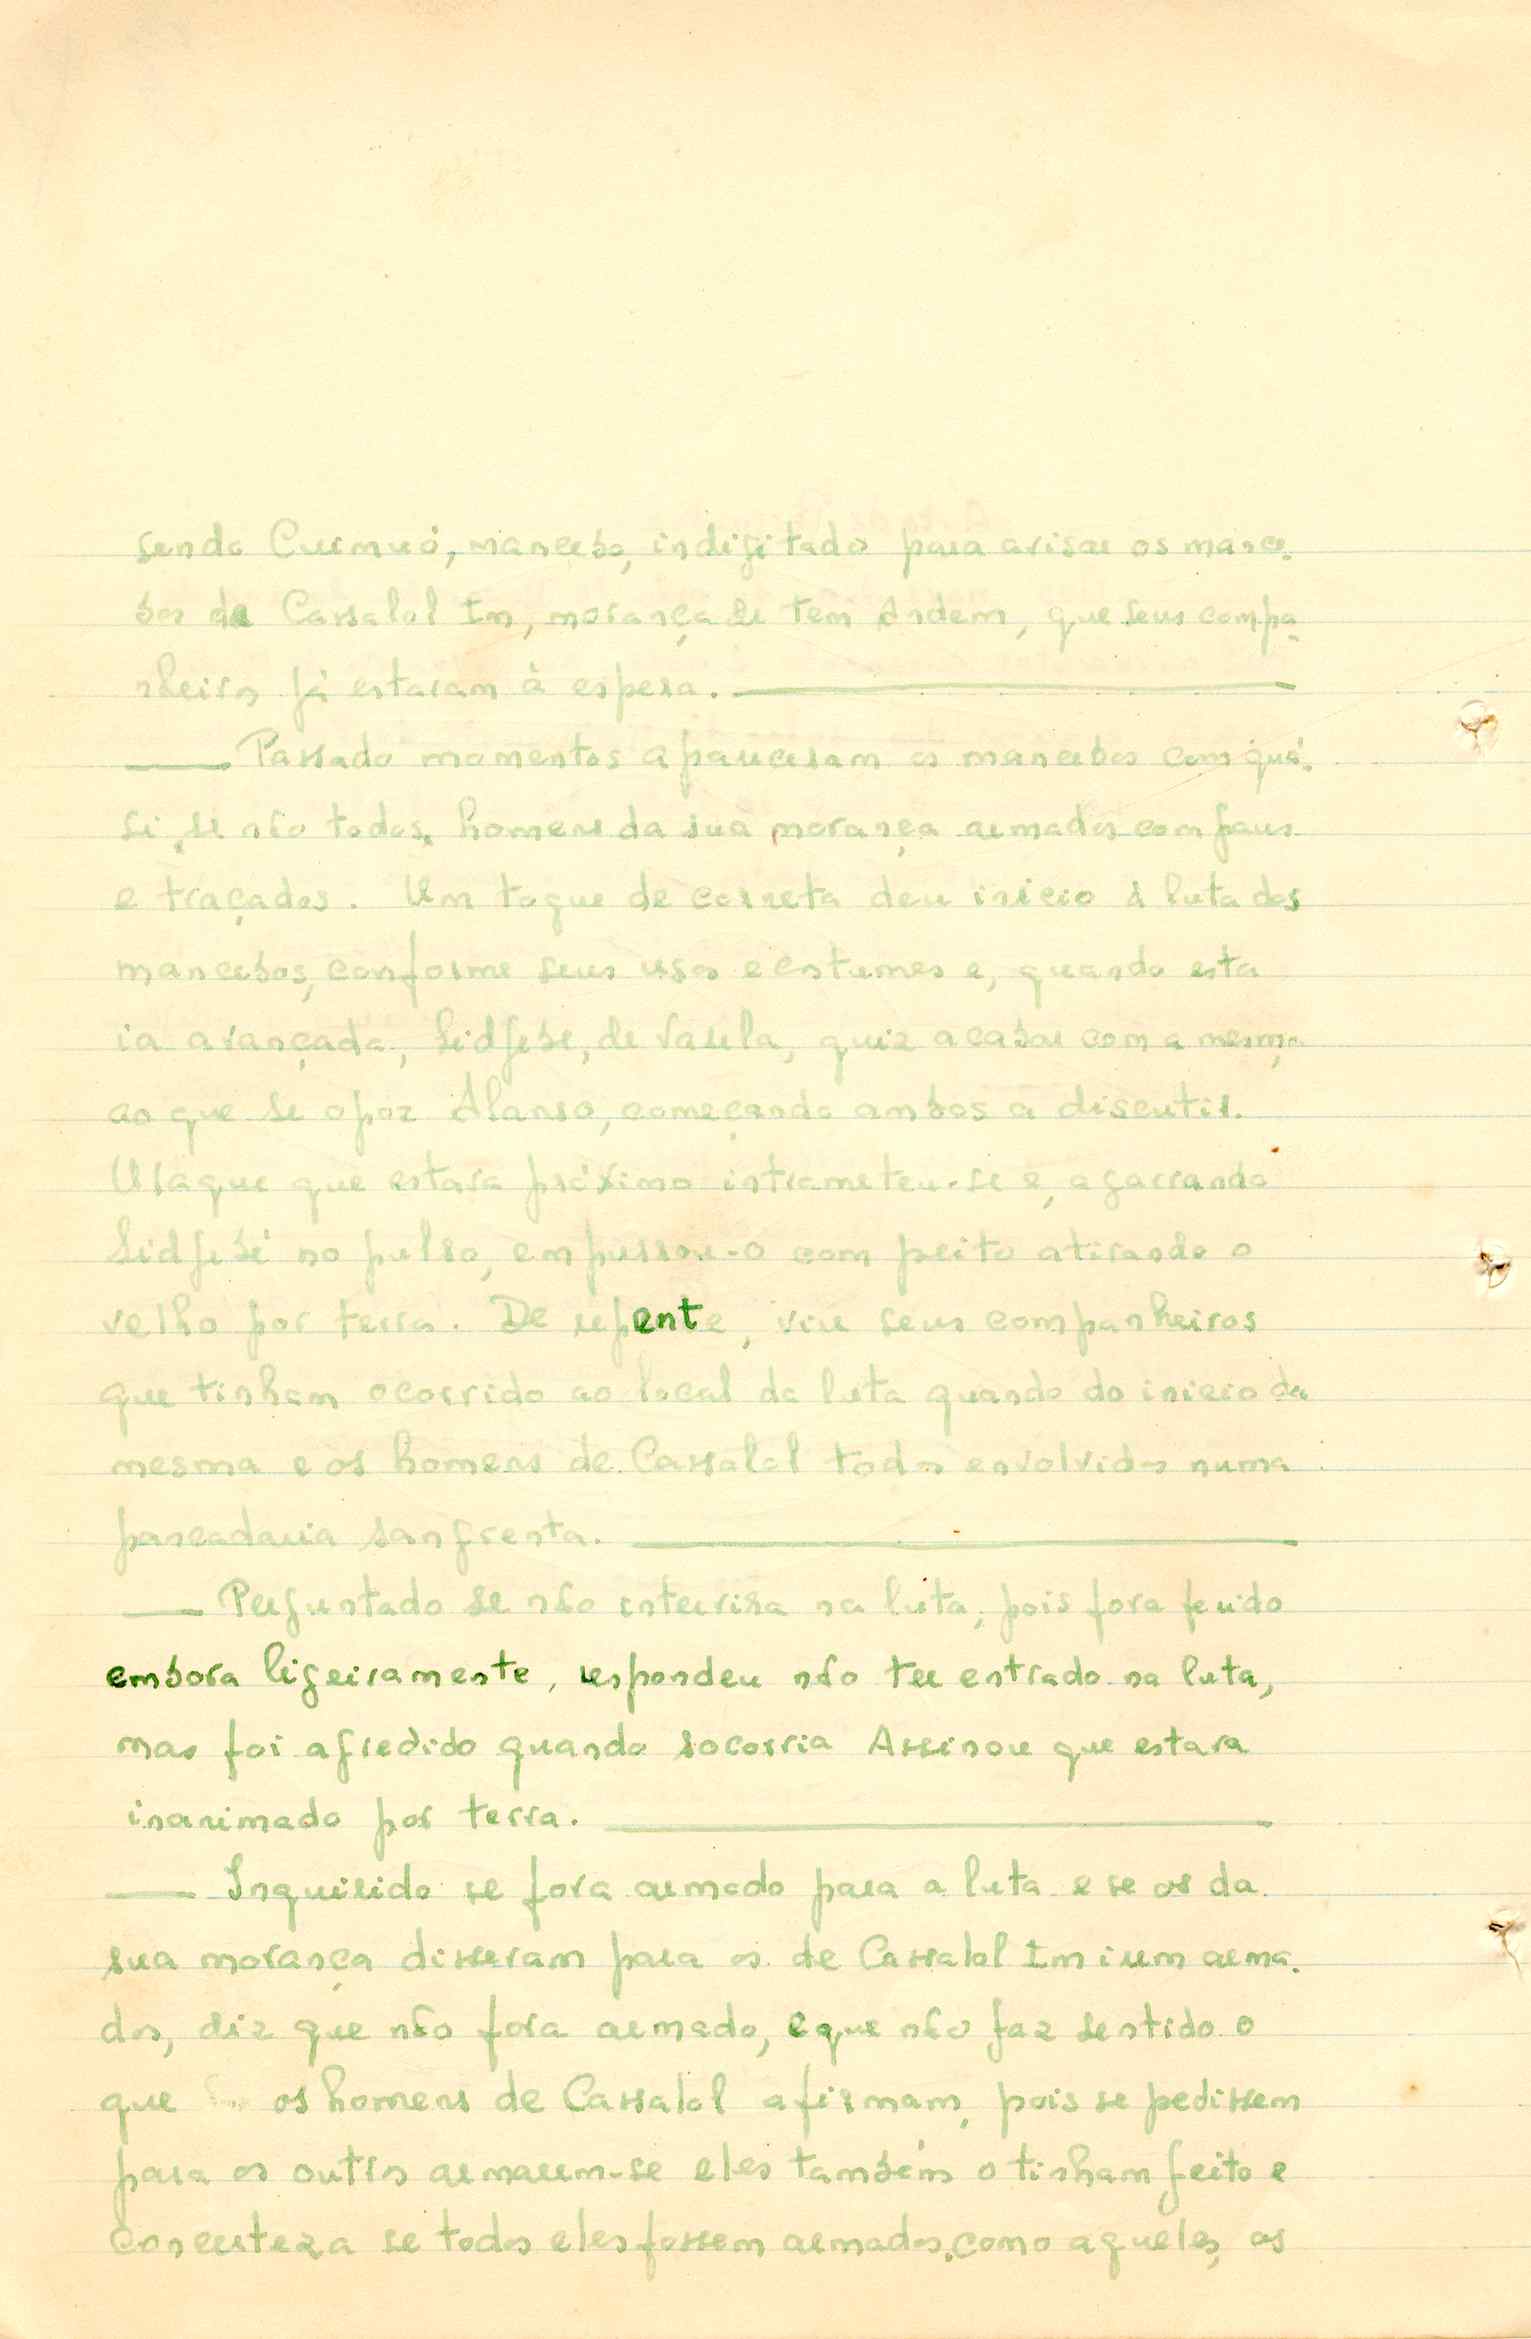 sendo Curmuó, mancebo, indigitado para avisar os mance-
bos de Cassalol Im, morança de tem Andem, que seus compa-
nheiros já estavam à espera.
Passado momentos apareceram os mancebos com quá-
si, se não todos, homens da sua morança armados com paus
e traçados. Um toque de corneta deu inicio à luta dos
mancebos, conforme seus usos e costumes e, quando esta
ia avançada, Sidjebé, de Varela, quiz acabar com a mesma
ao que se opoz Alanso, começando ambos a discutir.
Uraque que estava próximo intrometeu-se e, agarrando
Sidjebé no pulso, empurrou-o com peito atirando o
velho por terra. De repente, viu seus companheiros
que tinham ocorrido ao local da luta quando do inicio da
mesma e os homens de Cassalol todos envolvidos numa
pancadaria sangrenta.
Perguntado se não intervira na luta, pois fora ferido
embora ligeiramente, respondeu não ter entrado na luta,
mas foi agredido quando socorria Assinou que estava
inanimado por terra.
Inquirido se fora armado para a luta e se os da
sua morança disseram para os de Cassalol Im irem arma-
dos, diz que não fora armado, e que não faz sentido o
que os homens de Cassalol afirmam, pois se pedissem
para os outros armarem-se eles também o tinham feito e
concerteza se todos eles fossem armados, como aqueles, os